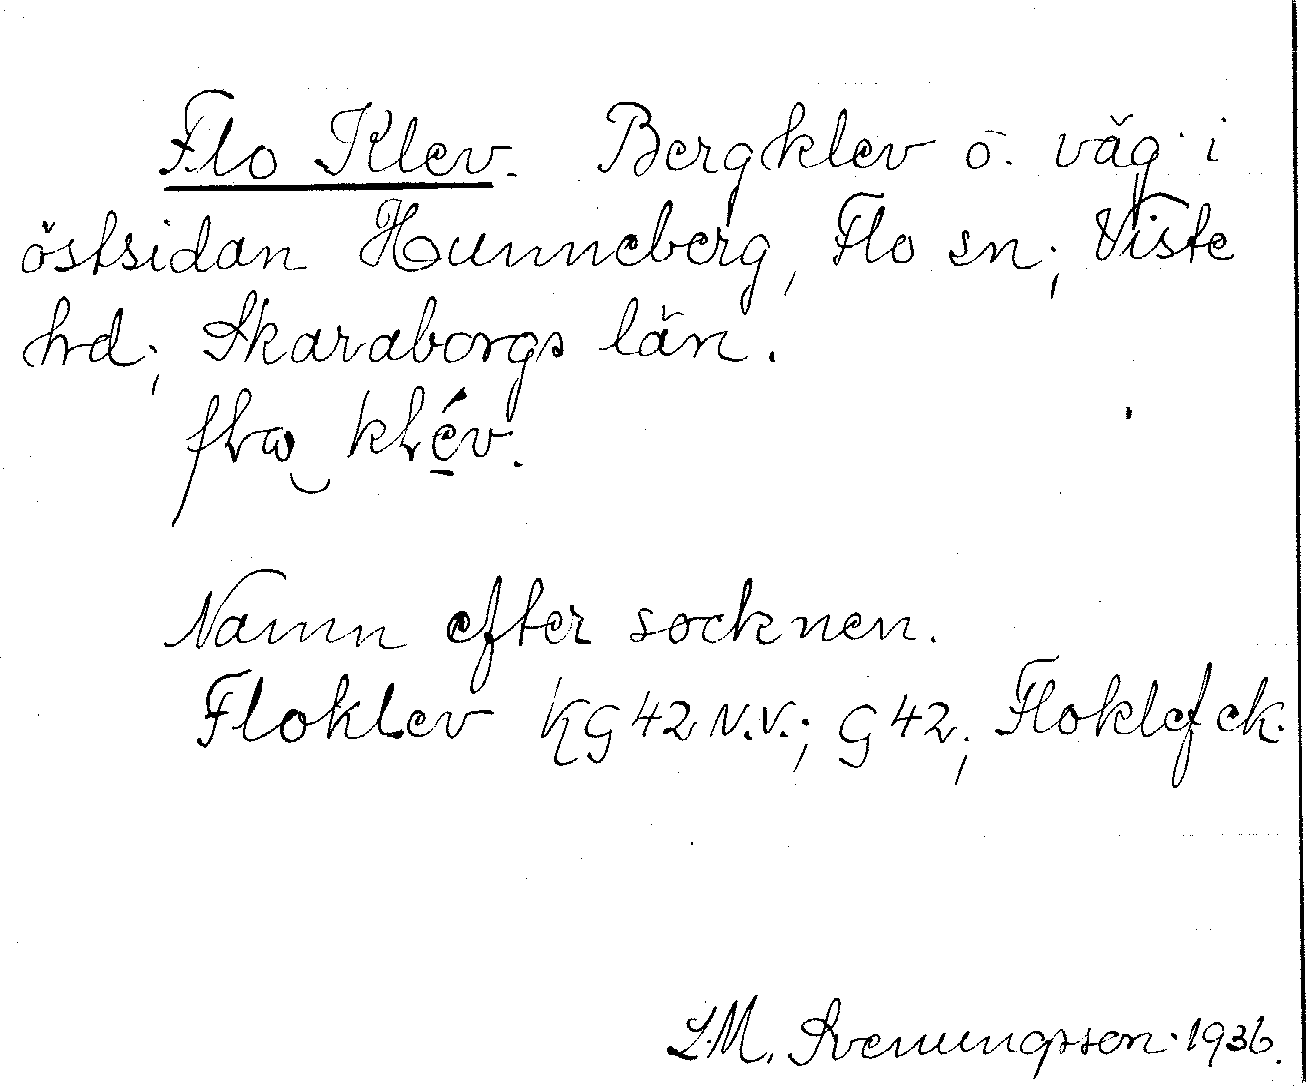 Flo Klev. Bergklev o. väg i
östsidan Hunneberg, Flo sn; Viste
hd; Skaraborgs län.
klév.
Namn efter socknen.
Floklev KG42 N.V.; G42; Floklef ek.
L.M. Svenungsson. 1936.